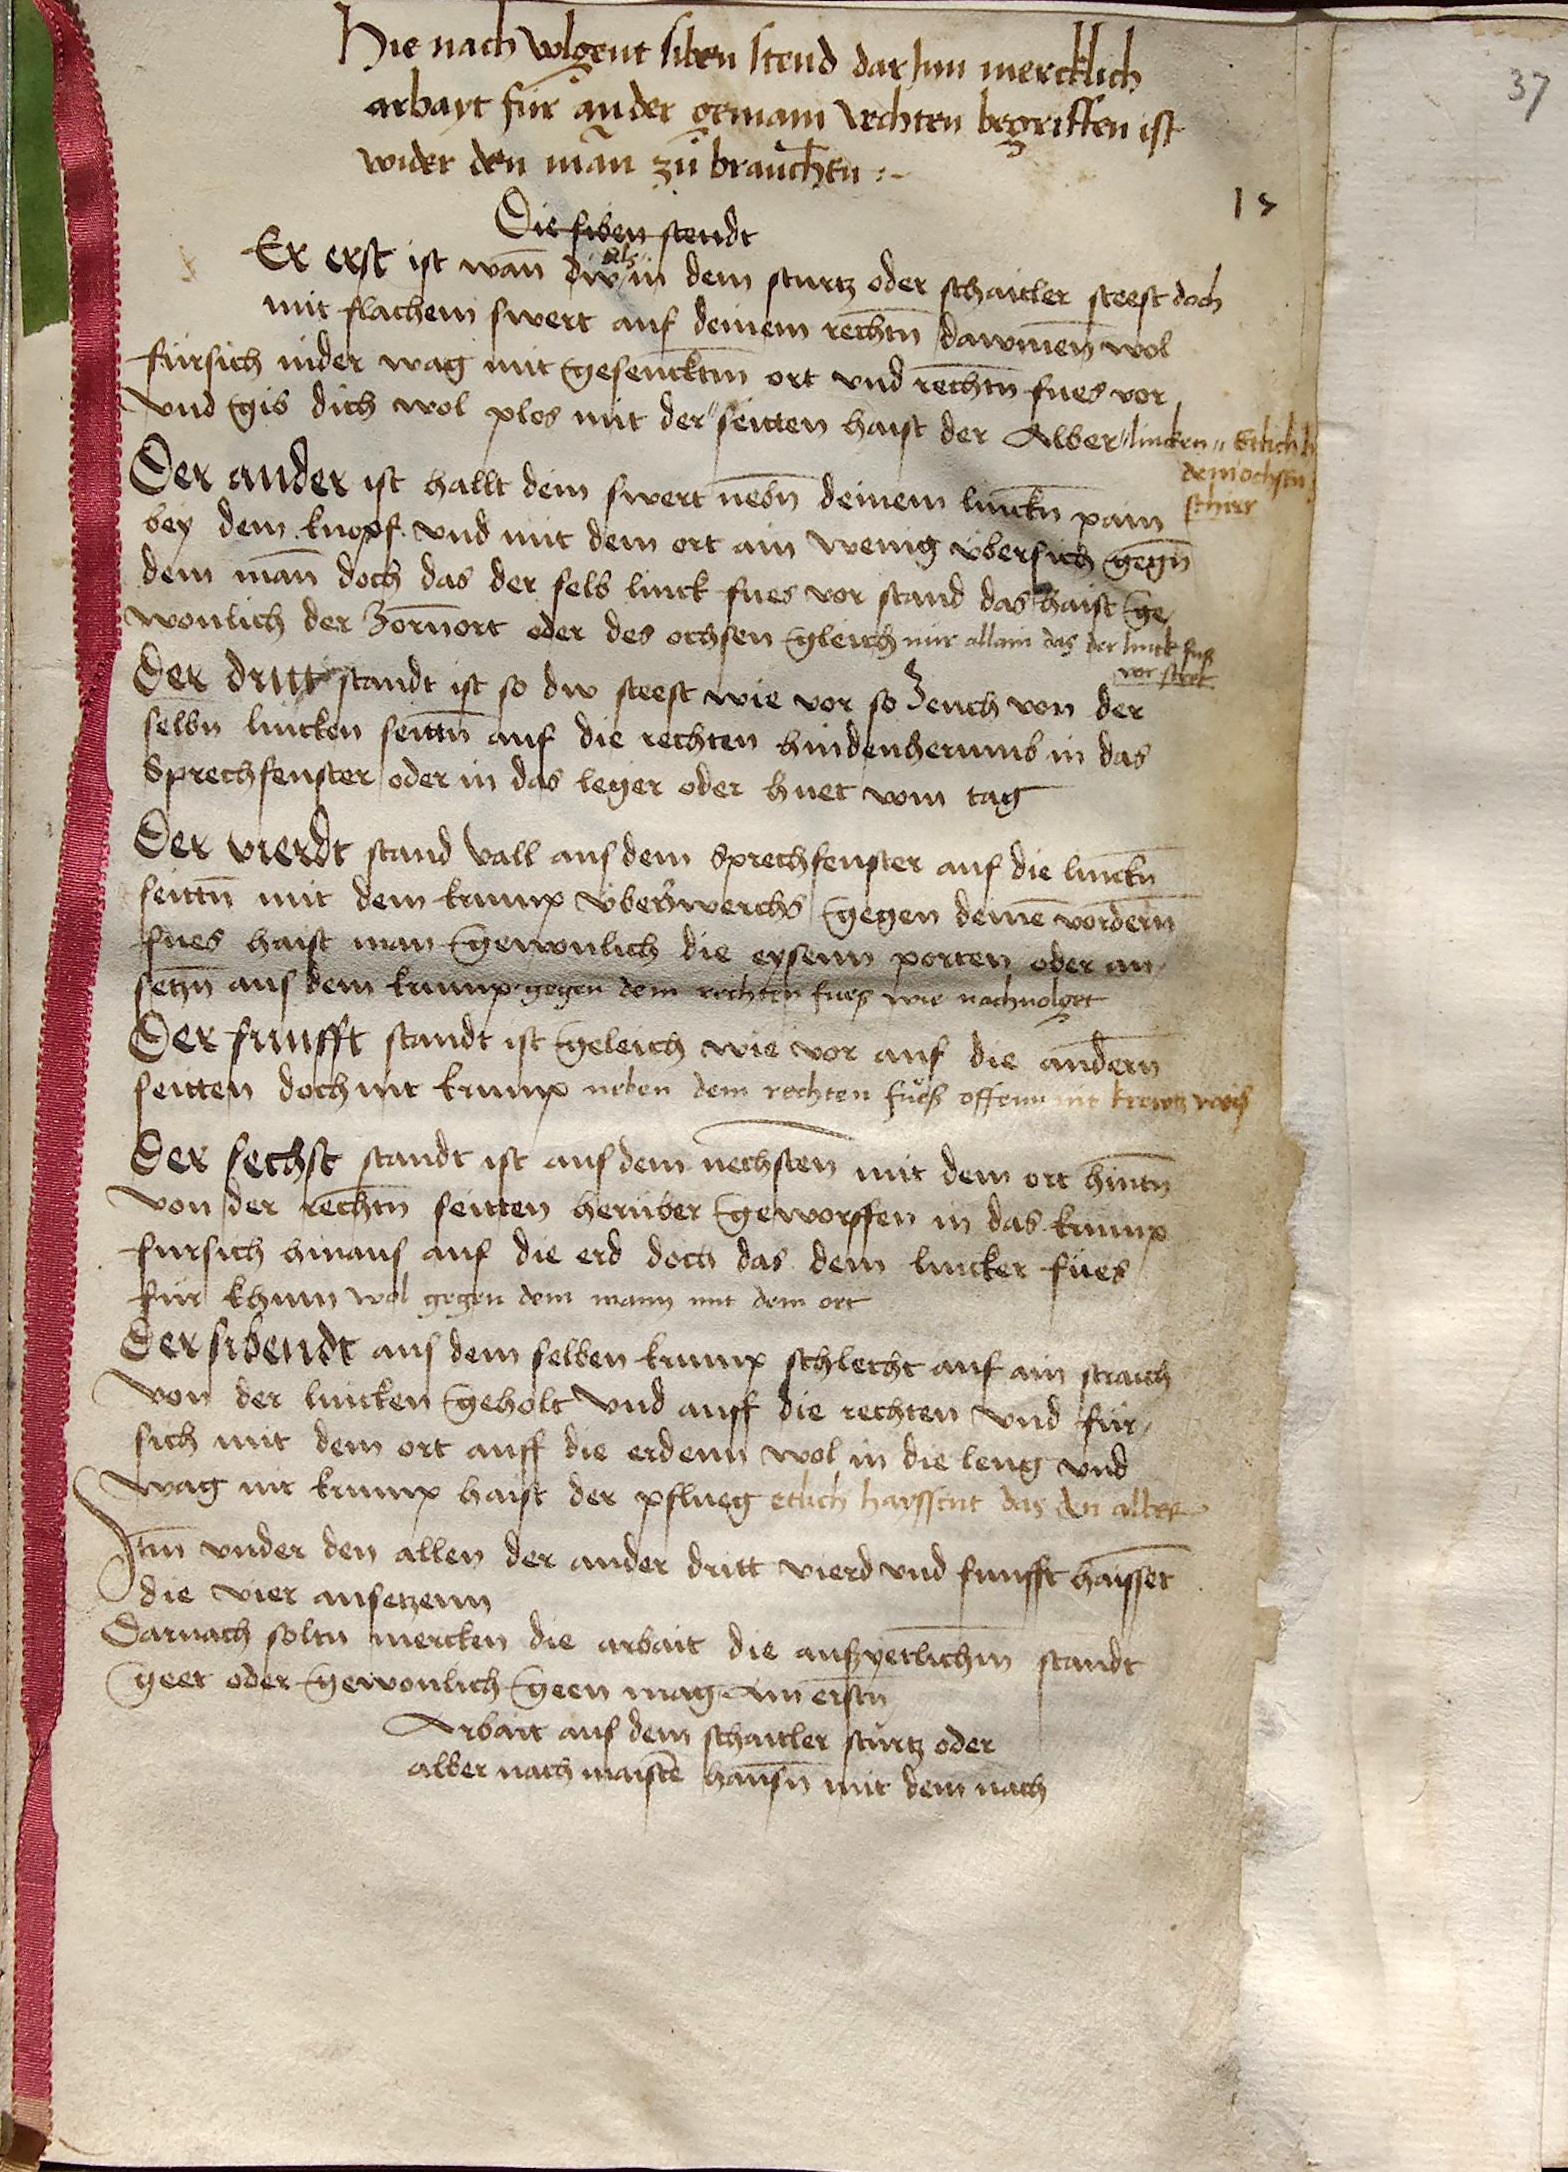 Hie nach volgent siben stend dar Inn mercklich
arbayt für ander gemain vechten begriffen ist
wider den man̄ zu brauchen :~
37
15
Die siben stendt
Er erst ist wan̄ diw als in dem sturtz oder schaitler steest doch
mit flachem swert auf deinem rechtn̄ dawmen̄ wol
fürsich inder wag mit gesencktm̄ ort vnd rechtn̄ fues vor
vnd gib dich wol plos mit der " seitten haist der Alber " lincken " Etlich h
dem ochsen
Der ander ist hallt dein swert nebn̄ deinem linckn̄ pain
bey dem knopf vnd mit dem ort ain wenig vbersich gegn̄
dem man̄ doch das der selb linck fues vor stand das haist ge
wonlich der Zorn̄ort oder des ochsen gleich nur allain das der linck fuß
vor steet
Der dritt standt ist so dw steest wie vor so Zeuch von der
selbn lincken seittn̄ auf die rechten hindenherumb in das
Sprechfenster oder in das leger oder huet vom tag
Der vierdt stand vall aus dem Sprechfenster auf die linckn̄
seittn̄ mit dem krump vberzwerchs gegen deinē vordern̄
fues haist man gewonlich die eysenn porten oder an
setzn̄ aus dem krump gegen dem rechten fues wie nachuolget
Der funfft standt ist geleich wie vor auf die andern̄
seitten doch nit krump neben dem rechten fueß offenn nit krewtz weis
Der sechst standt ist aus dem nechsten mit dem ort hintn̄
von der rechtn̄ seitten herüber geworffen in das krump
fursich hinaus auf die erd doch das dein lincker fües
für khum wol gegen dem mann mit dem ort
Der sibendt aus dem selben krump schlecht auf ain straich
von der lincken geholt vnd auff die rechten vnd für
sich mit dem ort auff die erdenn wol in die leng vnd
wag nit krump haist der pflueg etlich hayssent das den alber
Itm̄ vnder den allen der ander dritt vierd vnd funfft haisset
die vier ansetzenn
Darnach soltu mercken die arbait die aus yetlichm̄ standt
geet oder gewonlich geen mag Am̄ erstn̄
Arbait aus dem schaitler sturtz oder
alber nach maistē hannsn̄ mit dem nach